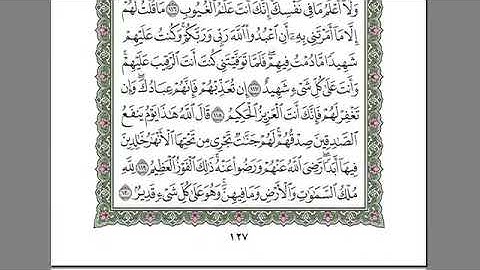 وَلَآ أَعْلَمُ مَا فِى نَفْسِكَ إِنَّكَ أَنتَ عَلَّٰمُ ٱلْغُيُوبِ ١١٦ مَا قُلْتُ لَهُمْ
إِلَّا مَآ أَمَرْتَنِى بِهِۦٓ أَنِ ٱعْبُدُوا۟ ٱللَّهَ رَبِّى وَرَبَّكُمْ وَكُنتُ عَلَيْهِمْ
شَهِيدًا مَّا دُمْتُ فِيهِمْ فَلَمَّا تَوَفَّيْتَنِى كُنتَ أَنتَ ٱلرَّقِيبَ عَلَيْهِمْ
وَأَنتَ عَلَىٰ كُلِّ شَىْءٍ شَهِيدٌ ١١٧ إِن تُعَذِّبْهُمْ فَإِنَّهُمْ عِبَادُكَ وَإِن
تَغْفِرْ لَهُمْ فَإِنَّكَ أَنتَ ٱلْعَزِيزُ ٱلْحَكِيمُ ١١٨ قَالَ ٱللَّهُ هَٰذَا يَوْمُ يَنفَعُ
ٱلصَّٰدِقِينَ صِدْقُهُمْ لَهُمْ جَنَّٰتٌ تَجْرِى مِن تَحْتِهَا ٱلْأَنْهَٰرُ خَٰلِدِينَ
فِيهَآ أَبَدًا رَّضِىَ ٱللَّهُ عَنْهُمْ وَرَضُوا۟ عَنْهُ ذَٰلِكَ ٱلْفَوْزُ ٱلْعَظِيمُ ١١٩ لِلَّهِ
مُلْكُ ٱلسَّمَٰوَٰتِ وَٱلْأَرْضِ وَمَا فِيهِنَّ وَهُوَ عَلَىٰ كُلِّ شَىْءٍ قَدِيرٌۢ ١٢٠
١٢٧